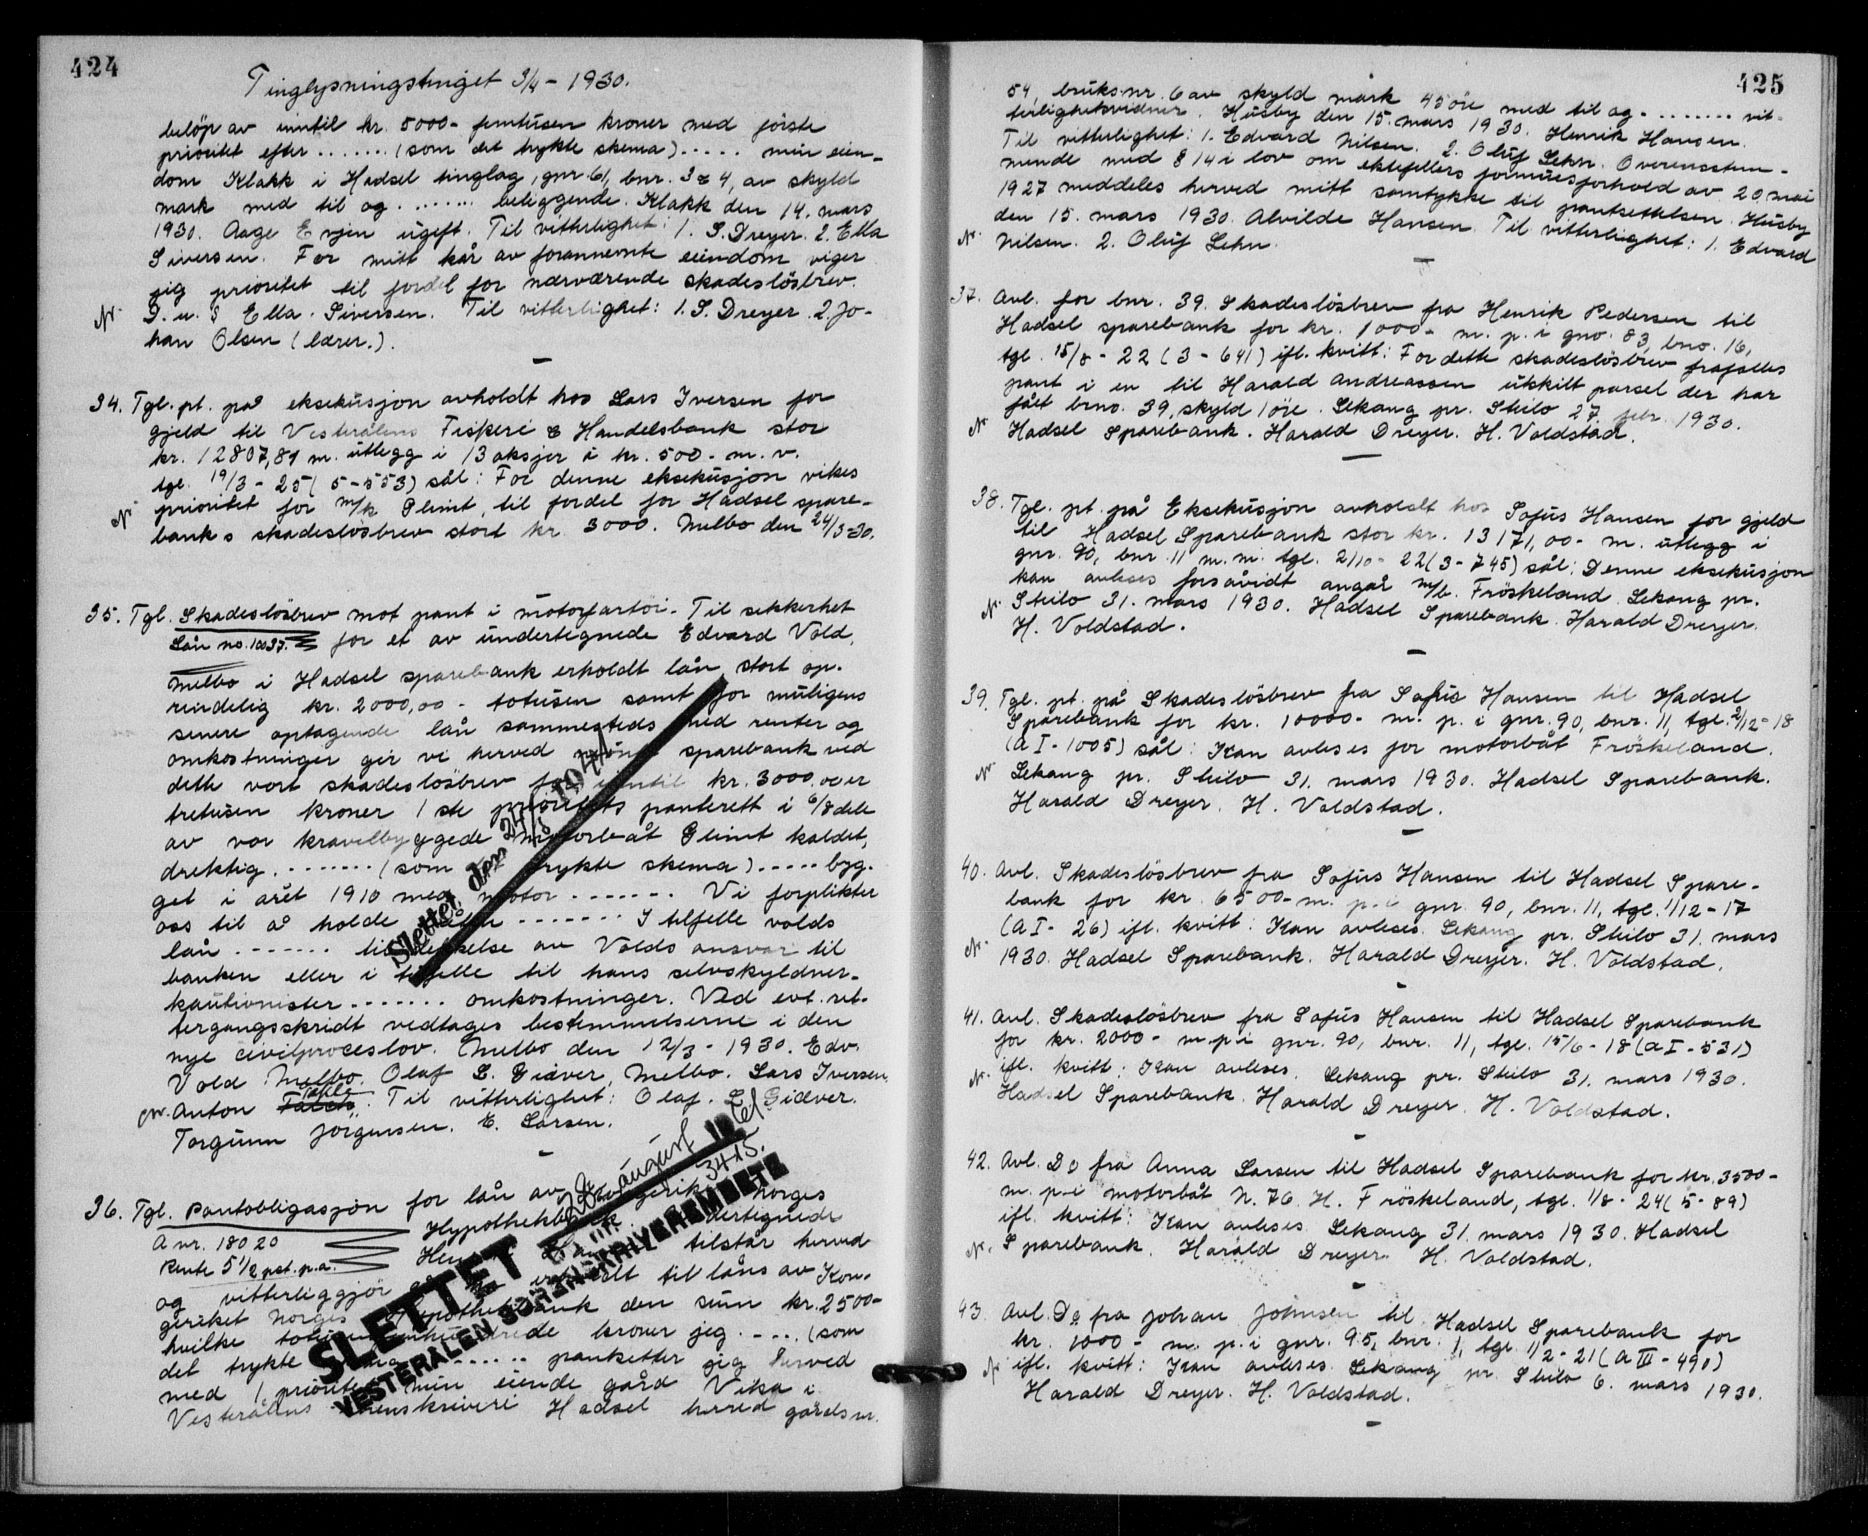 424
Tinglysningstinget 3/4 - 1930.
beløp av inntil kr. 5000- femtusen kroner med første
prioritet efter ....... (som det trykte skema) ..... min eien-
dom Klakk i Hadsel tinglag, gnr 61, bnr. 3 & 4, av skyld
mark med til og ........ beliggende. Klakk den 14. mars
1930. Aage Evjen ugift. Til vitterlighet: 1. S. Dreyer. 2. Ella
Siversen. For mitt kår av forannevnte eiendom viger
jeg prioritet til fordel for nærværende skadesløsbrev.
D. u. s Ella Siversen. Til vitterlighet: 1. S. Dreyer. 2. Jo-
han Olsen (lærer.).
34. Tgl. pt. på eksekusjon avholdt hos Lars Iversen for
gjeld til Vesterålens Fiskeri & Handelsbank stor
kr. 12807,81 m. utlegg i 13 aksjer á kr. 500- m. v.
tgl. 19/3 - 25 (5-553) sål: For denne eksekusjon vikes
prioritet for m/k Glimt, til fordel for Hadsel spare-
banks skadesløsbrev stort kr. 3000. Melbo den 24/3-30.
35. Tgl. Skadesløsbrev mot pant i motorfartøi. Til sikkerhet
Lån no. 10037. for et av undertegnede Edvard Vold,
Melbo i Hadsel sparebank erholdt lån, stort op-
rindelig kr. 2000,00 - totusen samt for muligens
senere optagende lån sammesteds med renter og
omkostninger gir vi herved nævnte sparebank ved
dette vort skadesløsbrev for inntil kr. 3000,00 er
tretusen kroner 1ste prioritets panterett i 6/8 dele
av vor kravelbyggede motorbåt Glimt kaldet,
drektig ........ (som trykte skema) ..... byg-
get i året 1910 med motor ....... Vi forplikter
oss til å holde ....... I tilfelle volds
lån ....... til dekkelse av Volds ansvar til
banken eller i tilfelle til hans selvskyldner-
kautionister ....... omkostninger. Ved evt. ret-
tergangsskridt vedtages bestemmelserne i den
nye civilproceslov. Melbo den 12/3 - 1930. Edv.
Vold Melbo. Olaf L. Giæver, Melbo. Lars Iversen,
pr. Anton Falch. Til vitterlighet: Olaf. L. Giæver.
Torgunn Jørgensen. E. Larsen.
Slettet den 24/5 1941
36. Tgl. Pantobligasjon for lån av Kongeriket Norges
A nr. 18020 Hypothekbank. Undertegnede
Rente 5 1/2 pct. p.a. Henrik Hansen tilstår herved
og vitterliggjør å ha erholdt til låns av Kon-
geriket Norges Hypothekbank den sum kr. 2500-
hvilke totusenfemhundrede kroner jeg ..... (som
det trykte ....... pantsetter jeg herved
med 1 prioritet min eiende gård Vika i
Vesterålens sorenskriveri Hadsel herred gårdsnr.
SLETTET 28 august
VESTERÅLEN SORENSKRIVEREMBETE
3415.
425
54, bruksnr. 6 av skyld mark 45 øre med til og ........ vit-
terlighetsvidner. Husby den 15. mars 1930. Henrik Hansen.
Til vitterlighet: 1. Edvard Nilsen. 2. Oluf Lehn. Overensstem-
mende med § 14 i lov om ektefellers formuesforhold av 20, mai
1927 meddeles herved mitt samtykke til pantsettelsen. Husby
den 15. mars 1930. Alvilde Hansen. Til vitterlighet: 1. Edvard
Nilsen. 2. Oluf Lehn.
37. Avl. for bnr. 39. Skadesløsbrev fra Henrik Pedersen til
Hadsel sparebank for kr. 1000- m. p. i gno. 83, bno. 16,
tgl. 15/8 - 22 (3 - 641) ifl. kvitt: For dette skadesløsbrev frafalles
pant i en til Harald Andreassen utskilt parsel der har
fått brno. 39, skyld 1 øre. Lekang pr. Stilo 27. febr. 1930.
Hadsel Sparebank. Harald Dreyer. H. Voldstad.
38. Tgl. pt. på Eksekusjon avholdt hos Sofus Hansen for gjeld
til Hadsel Sparebank stor kr. 13171,00- m. utlegg i
gnr. 90, bnr. 11 m. m. tgl. 2/10 - 22 (3 - 745) sål: Denne eksekusjon
kan avleses forsåvidt angår m/b. Frøskeland. Lekang pr.
Stilo 31. mars 1930. Hadsel Sparebank. Harald Dreyer.
H. Voldstad.
39. Tgl. pt. på Skadesløsbrev fra Sofus Hansen til Hadsel
Sparebank for kr. 10000- m. p. i gnr. 90, bnr. 11, tgl. 2/12 - 18
(A I - 1005) sål: Kan avleses for motorbåt Frøskeland.
Lekang pr. Stilo 31. mars 1930. Hadsel Sparebank.
Harald Dreyer. H. Voldstad.
40. Avl. Skadesløsbrev fra Sofus Hansen til Hadsel Spare-
bank for kr. 6500- m. p. i gnr. 90, bnr. 11, tgl. 1/12 - 17
(A I - 26) ifl. kvitt: Kan avleses. Lekang pr. Stilo 31. mars
1930. Hadsel Sparebank. Harald Dreyer. H. Voldstad.
41. Avl. Skadesløsbrev fra Sofus Hansen til Hadsel Sparebank
for kr. 2000- m. p. i gnr. 90, bnr. 11, tgl. 15/6 - 18 (A I - 531)
ifl. kvitt: Kan avleses. Lekang pr. Stilo 31. mars 1930.
Hadsel Sparebank. Harald Dreyer. H. Voldstad.
42. Avl. Do fra Anna Larsen til Hadsel Sparebank for kr. 3500-
m. p. i motorbåt N. 76. H. Frøskeland, tgl. 1/8 - 24 (5 - 89)
ifl. kvitt: Kan avleses. Lekang 31. mars 1930. Hadsel
Sparebank. Harald Dreyer. H. Voldstad.
43. Avl. Do fra Johan Johnsen til Hadsel Sparebank for
kr. 1000- m. p. i gnr. 95, bnr. 1, tgl. 1/2 - 21 (A III - 490)
ifl. kvitt: Kan avleses. Lekang pr. Stilo 6. mars 1930.
Harald Dreyer. H. Voldstad.